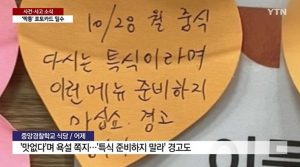 사건·사고 소식
'뚝뚝' 포토카드 밀수
10/28 월 중식
다시는 특식이라며
이런 메뉴 준비하지
마십쇼. 경고
중앙경찰학교 식당 / 어제
'맛없다'며 욕설 쪽지…'특식 준비하지 말라' 경고도